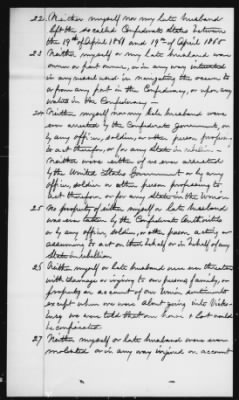 22. Neither myself nor my late husband
left the so called Confederate States between
the 19th of April 1861 and 19th of April 1865
23. Neither myself nor my late husband were
owner or part owner, or in any way interested
in any vessel used in navigating the ocean to
or from any port in the Confederacy, or upon any
water in the Confederacy —
24. Neither myself nor my late husband were
ever arrested by the Confederate Government, or
by any officer, soldier, or other person professing
to act therefor, or for any State in rebellion —
Neither were either of us ever arrested
by the United States Government or by any
officer, soldier or other person professing to
act therefor, or for any state in the Union
25. No property of either myself or late husband
was ever taken by the Confederate Authorities
or by any officer, soldier, or other person acting or
assuming to act on their behalf or in behalf of any
State in rebellion
26 Neither myself or late husband were ever threatened
with damage or injury to our persons, family, or
property on account of our Union sentiments
except when we were about going into Vicks-
burg we were told that our house & lot would
be confiscated
27 Neither myself or late husband were ever
molested or in any way injured on account